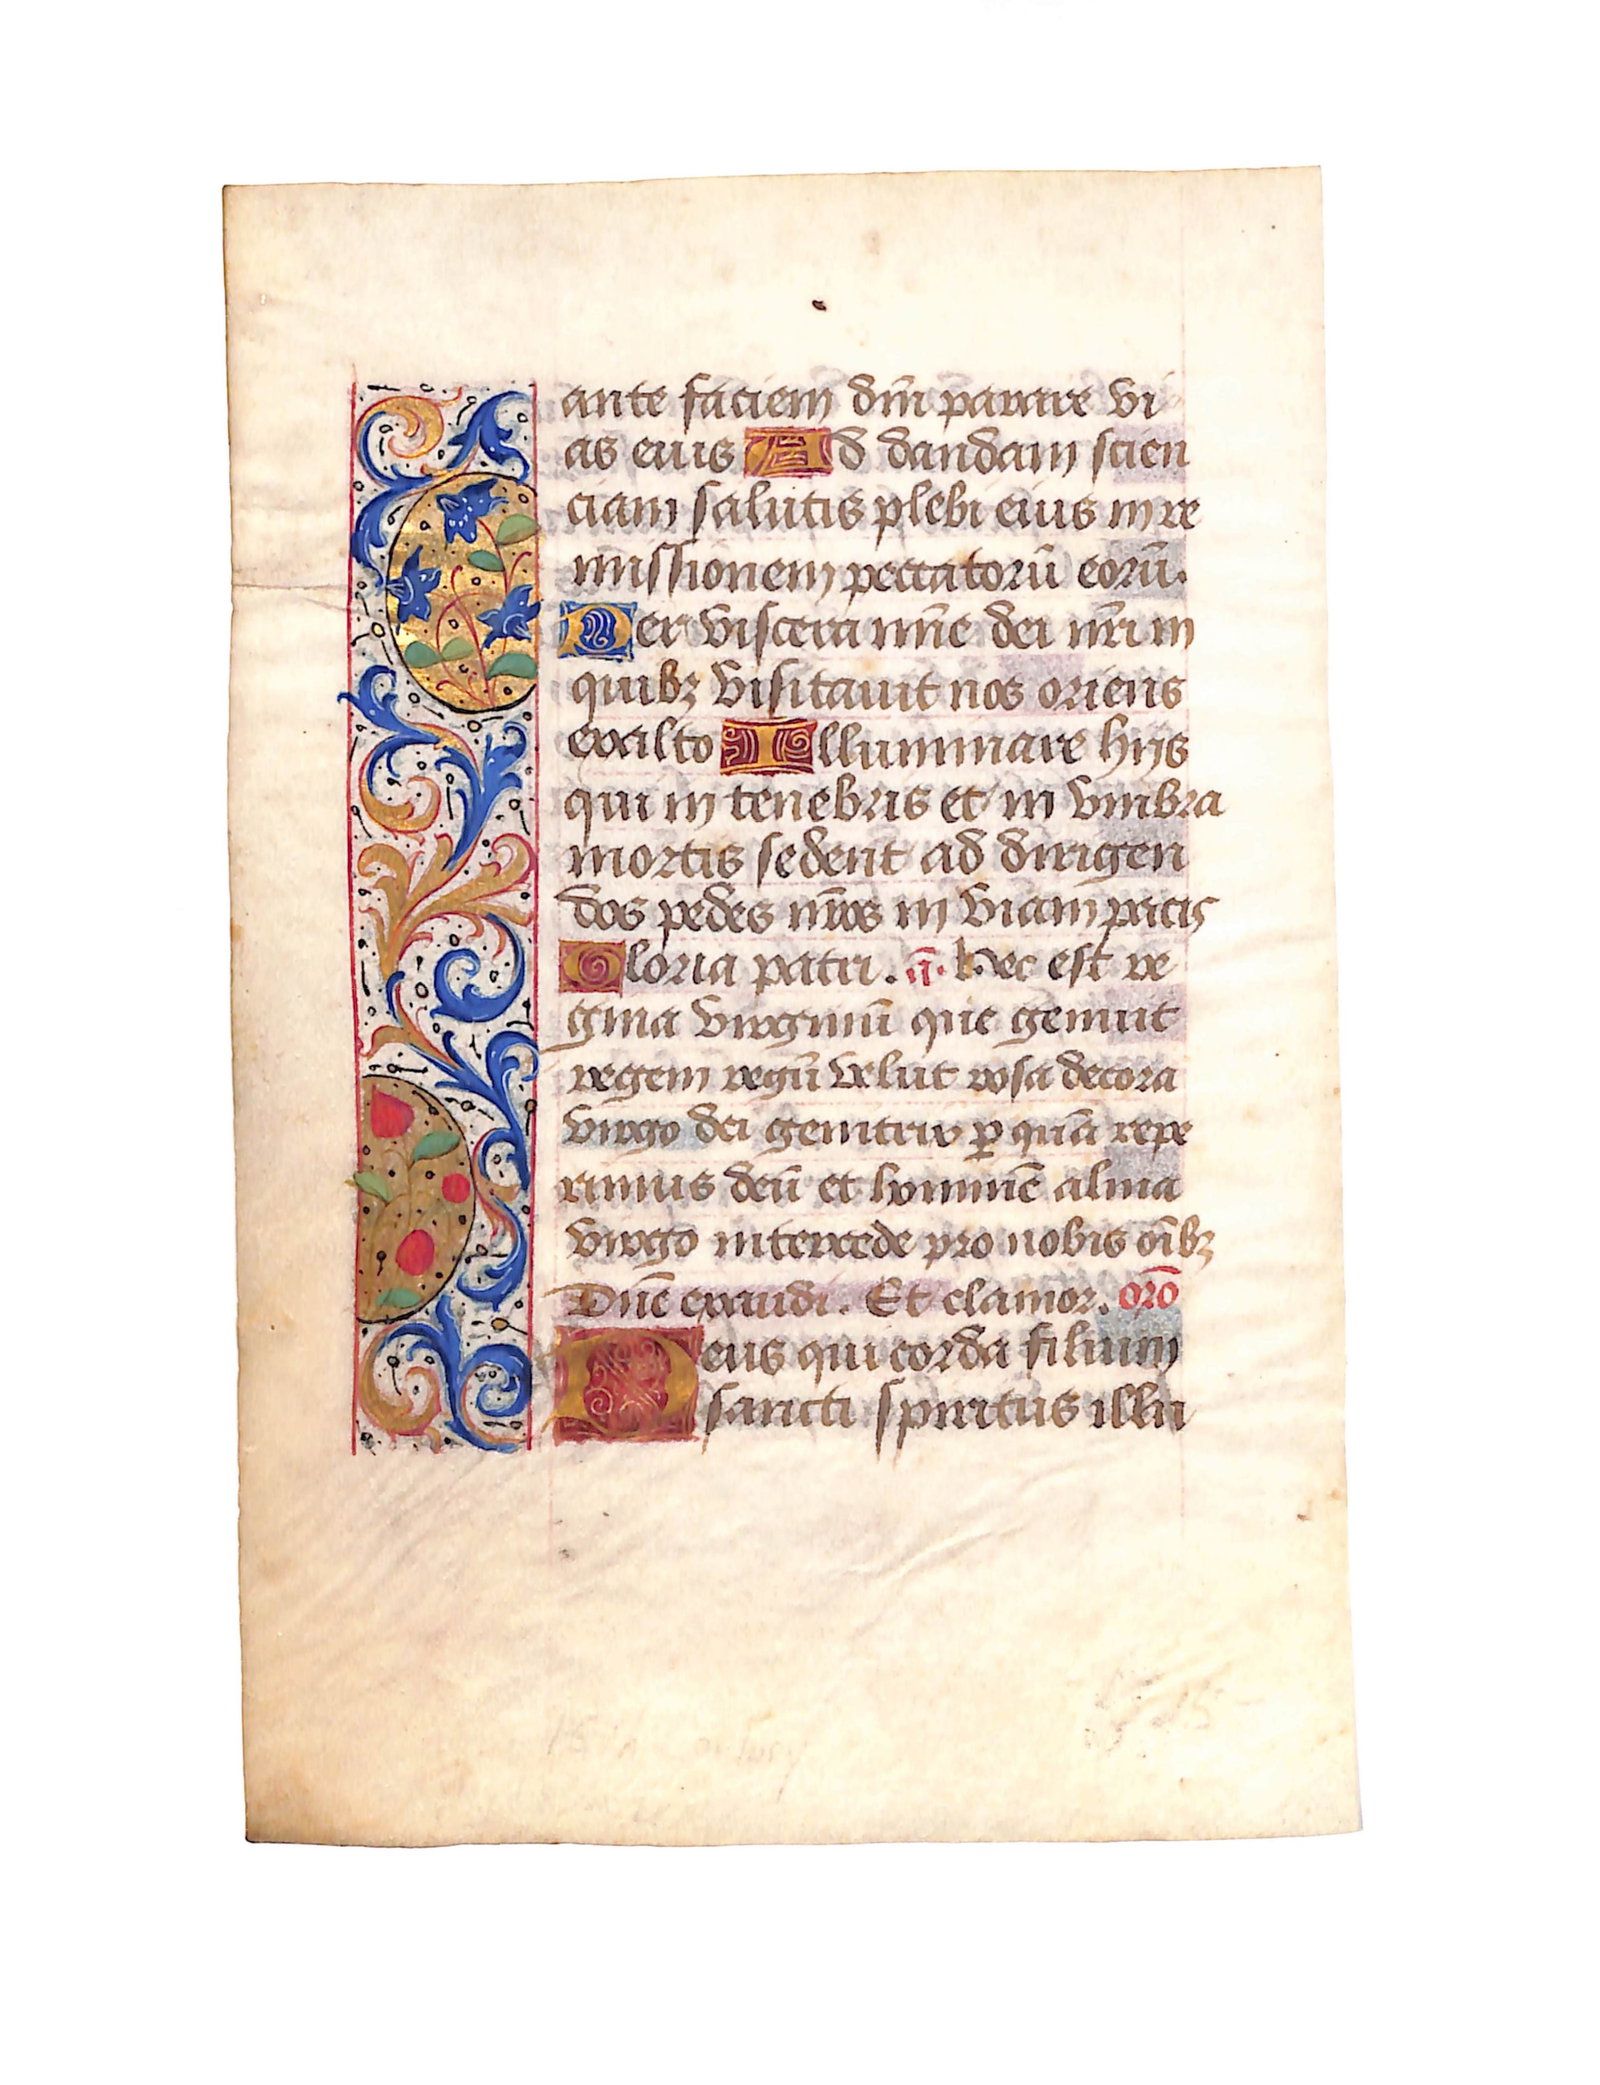 ante faciem dm̄ parare vi
as eius Ad dandam scien
ciam salutis plebi eius in re
missionem peccatorū eorū.
Per viscera mīe dei nr̄i in
quibꝫ visitauit nos oriens
exalto Illuminare hijs
qui in tenebris et in vmbra
mortis sedent ad dirigen
dos pedes nr̄os in viam pacis
Gloria patri. añ. Hec est re
gina virginū que genuit
regem regū velut rosa decora
virgo dei genitrix ꝑ quā repe
rimus deū et hominē alma
virgo intercede pro nobis oībꝫ
Dn̄e exaudi. Et clamor. oro͞
Deus qui corda filium
sancti spiritus illu